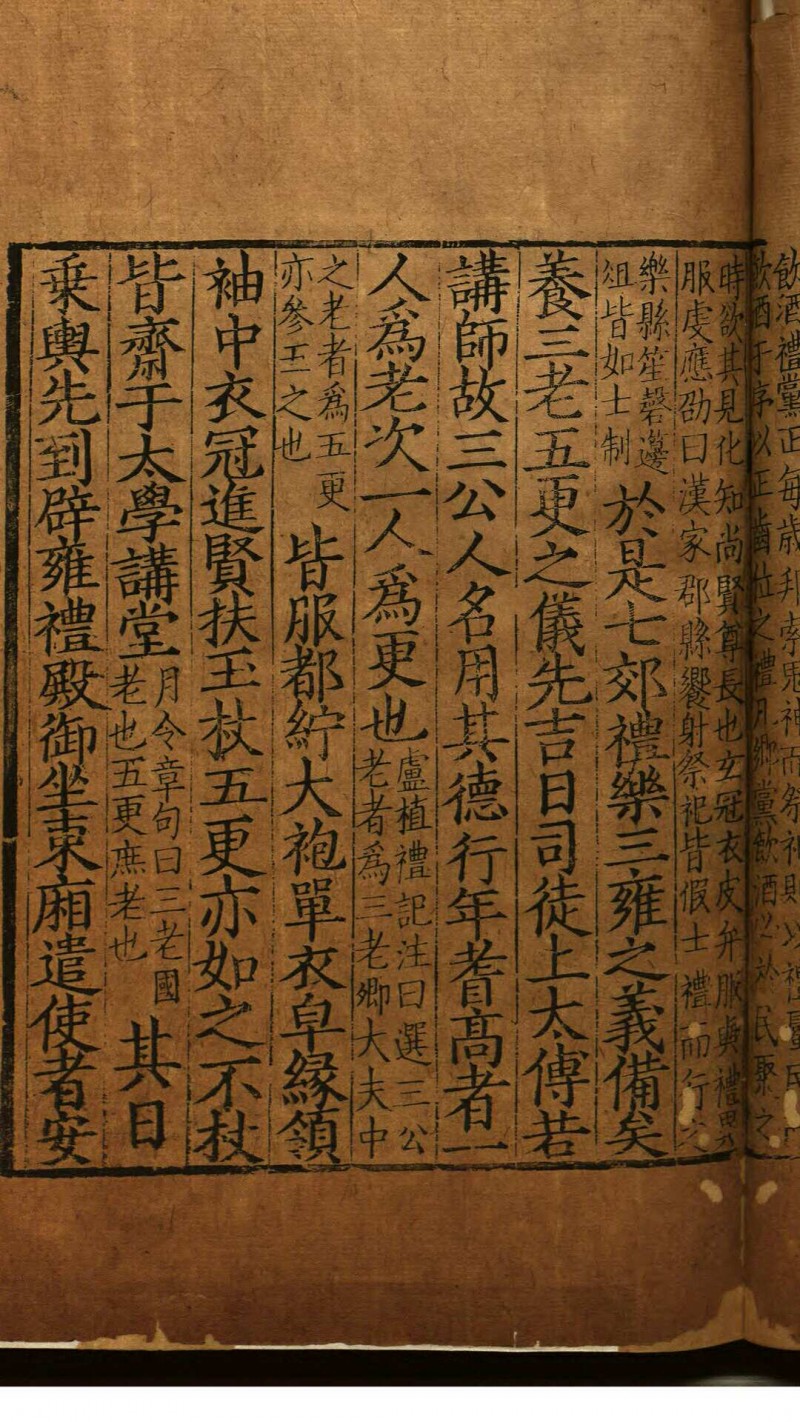 飲酒禮黨正每歲邦索鬼神而祭神則以禮屬民
飲酒于序以正齒位之禮凡鄉黨飲酒必於民聚之
時欲其見化知尚賢尊長也玄冠衣皮弁服與禮異
服虔應劭曰漢家郡縣饗射祭祀皆假士禮而行之
樂縣笙磬籩
俎皆如士制
於是七郊禮樂三雍之義備矣
養三老五更之儀先吉日司徒上太傅若
講師故三公人名用其德行年耆高者一
人爲老次一人爲更也
盧植禮記注曰選三公
老者爲三老卿大夫中
之老者爲五更
亦參五之也
皆服都紵大袍單衣皁緣領
袖中衣冠進賢扶玉杖五更亦如之不杖
皆齋于太學講堂
月令章句曰三老國
老也五更庶老也
其日
乗輿先到辟雍禮殿御坐東廂遣使者安